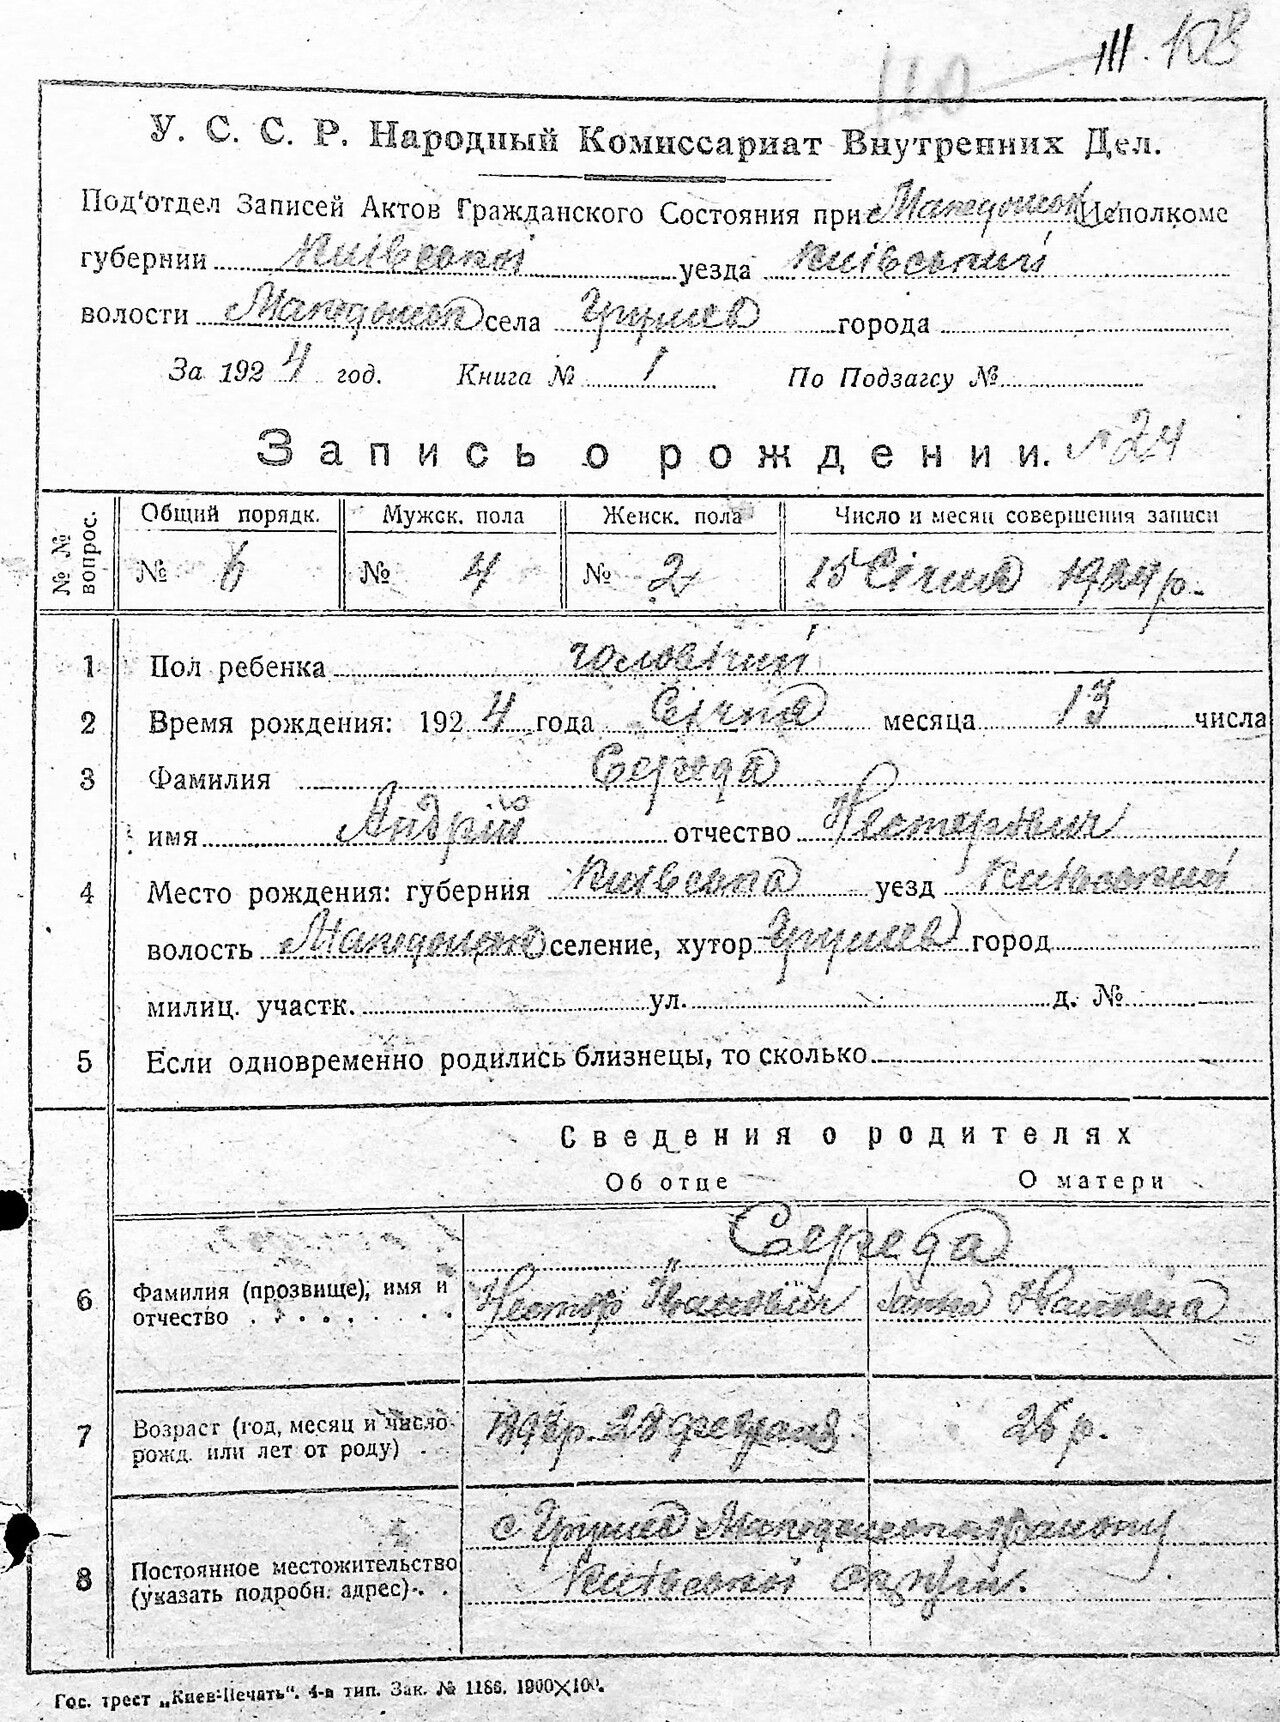 110 III. 108
У. С. С. Р. Народный Комиссариат Внутренних Дел.
Под'отдел Записей Актов Гражданского Состояния при Исполкоме
губернии Київській уезда Київський
волости села Грушев города
За 1924 год. Книга № 1 По Подзагсу №
Запись о рождении. № 24
№ № вопрос. Общий порядк. Мужск. пола Женск. пола Число и месяц совершения записи
№ 6 № 4 № 2 15 Січня 1924 р.
1 Пол ребенка чоловічий
2 Время рождения: 1924 года Січня месяца 13 числа
3 Фамилия Середа
имя Андрій отчество Несторович
4 Место рождения: губерния Київська уезд Київський
волость селение, хутор Грушев город
милиц. участк. ул. д. №
5 Если одновременно родились близнецы, то сколько
Сведения о родителях
Об отце О матери
Середа
6 Фамилия (прозвище), имя и отчество Нестор Іванович Ивановна
7 Возраст (год, месяц и число рожд. или лет от роду) 28 февраля 26 р.
8 Постоянное местожительство (указать подробн. адрес) с Грушев району
Київської округи.
Гос. трест „Киев-Печать". 4-я тип. Зак. № 1186. 1900×100.